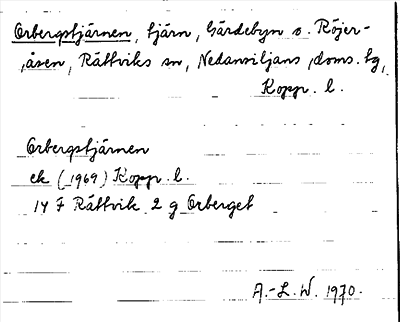 Orbergstjärnen, tjärn, Gärdebyn o. Röjer-
åsen, Rättviks sn, Nedansiljans doms. tg,
Kopp. l.
Orbergstjärnen
ek (1969) Kopp. l.
14 F Rättvik 2 g Orberget
A.-L. W. 1970.